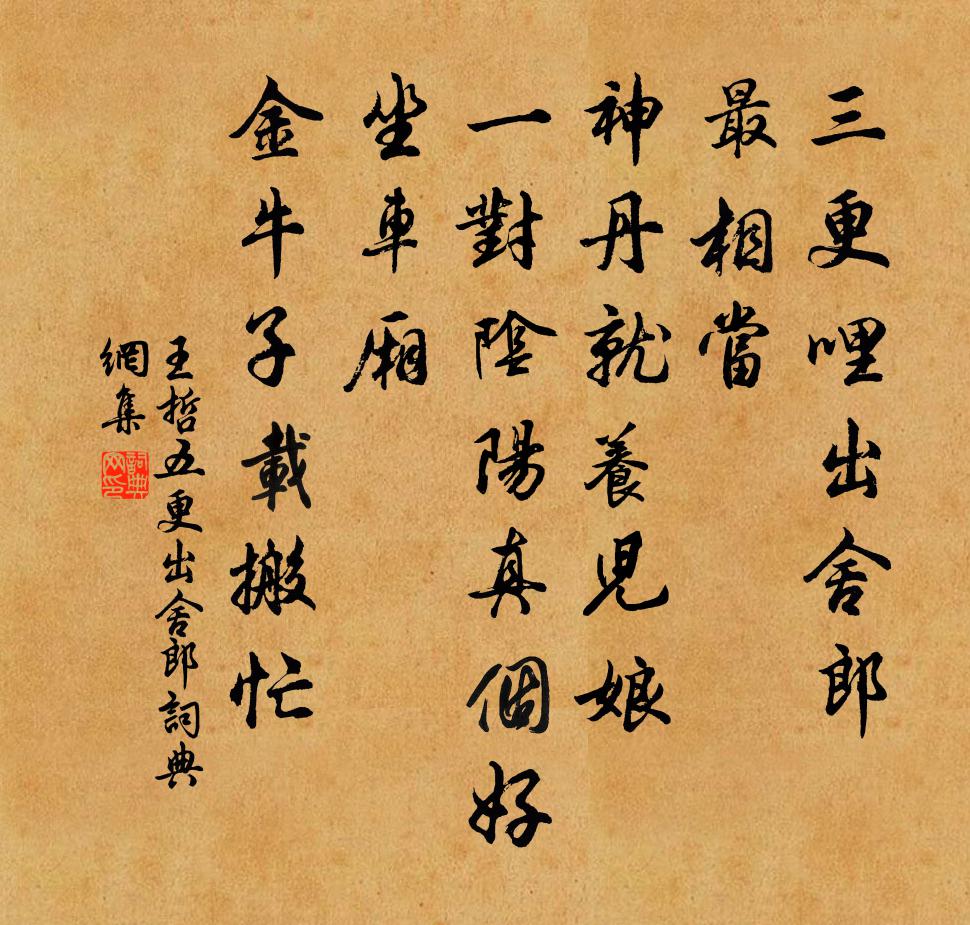 三更哩出舍郎
最相當
神丹就養兒娘
一對陰陽真個好
坐車廂
金牛子載搬忙
王哲五更出舍郎詞典
網集
詞典網印